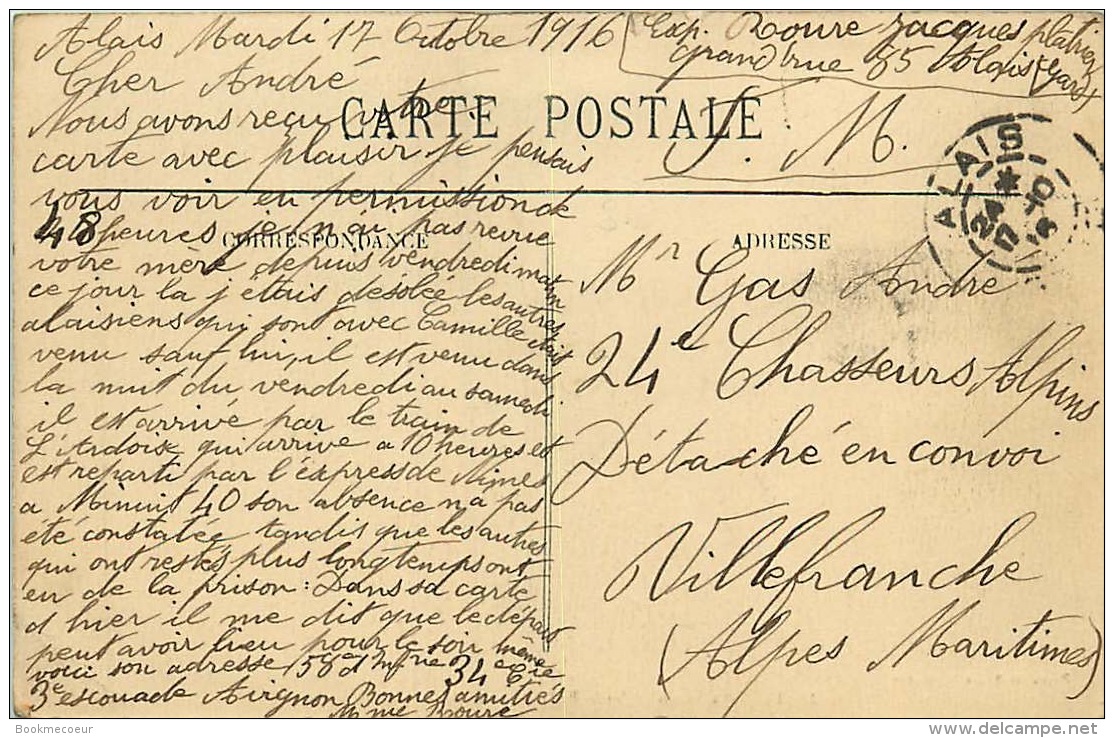 Alais Mardi 17 Octobre 1916
Exp. Roure Jacques platrier
grand'rue 85 Alais (Gard)
Cher André
CARTE POSTALE
Nous avons reçu votre
F. M.
carte avec plaisir je pensais
vous voir en permission de
48 heures je n'ai pas revue
CORRESPONDANCE
votre mère depuis vendredi matin
ce jour la j'étais désolée les autres
alaisiens qui sont avec Camille etais
venu sauf lui, il est venu dans
la nuit du vendredi au samedi
il est arrivé par le train de
L'Ardoise qui arrive a 10 heures et
est reparti par l'éxpress de Nimes
a Minuit 40 son absence n'a pas
été constatée tandis que les autres
qui ont restés plus longtemps ont
eu de la prison : Dans sa carte
d'hier il me dit que le départ
peut avoir lieu pour le soir même
voici son adresse 158e d'Infrie 34e Cie
3e escouade Avignon Bonnes amitiés
Mme Roure
ADRESSE
ALAIS
24
17 -10
16
Mr Gas André
24e Chasseurs Alpins
Détaché en convoi
Villefranche
(Alpes Maritimes)
Bookmecoeur
www.delcampe.net